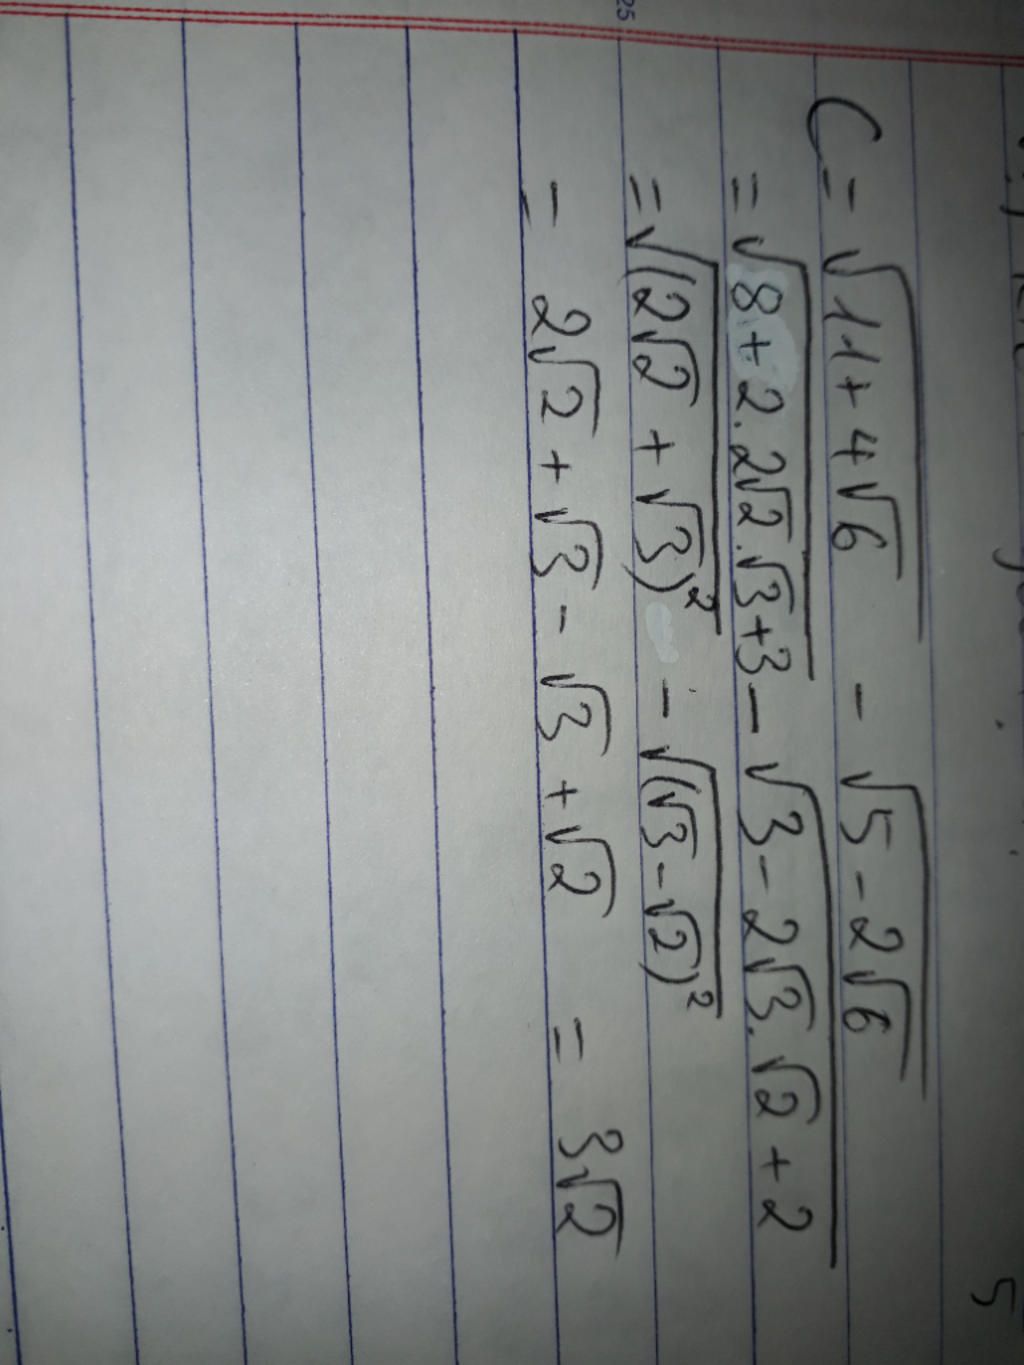 C = √(11 + 4√6) - √(5 - 2√6)
= √(8 + 2.2√2.√3 + 3) - √(3 - 2√3.√2 + 2)
= √((2√2 + √3)²) - √((√3 - √2)²)
= 2√2 + √3 - √3 + √2 = 3√2
25
5